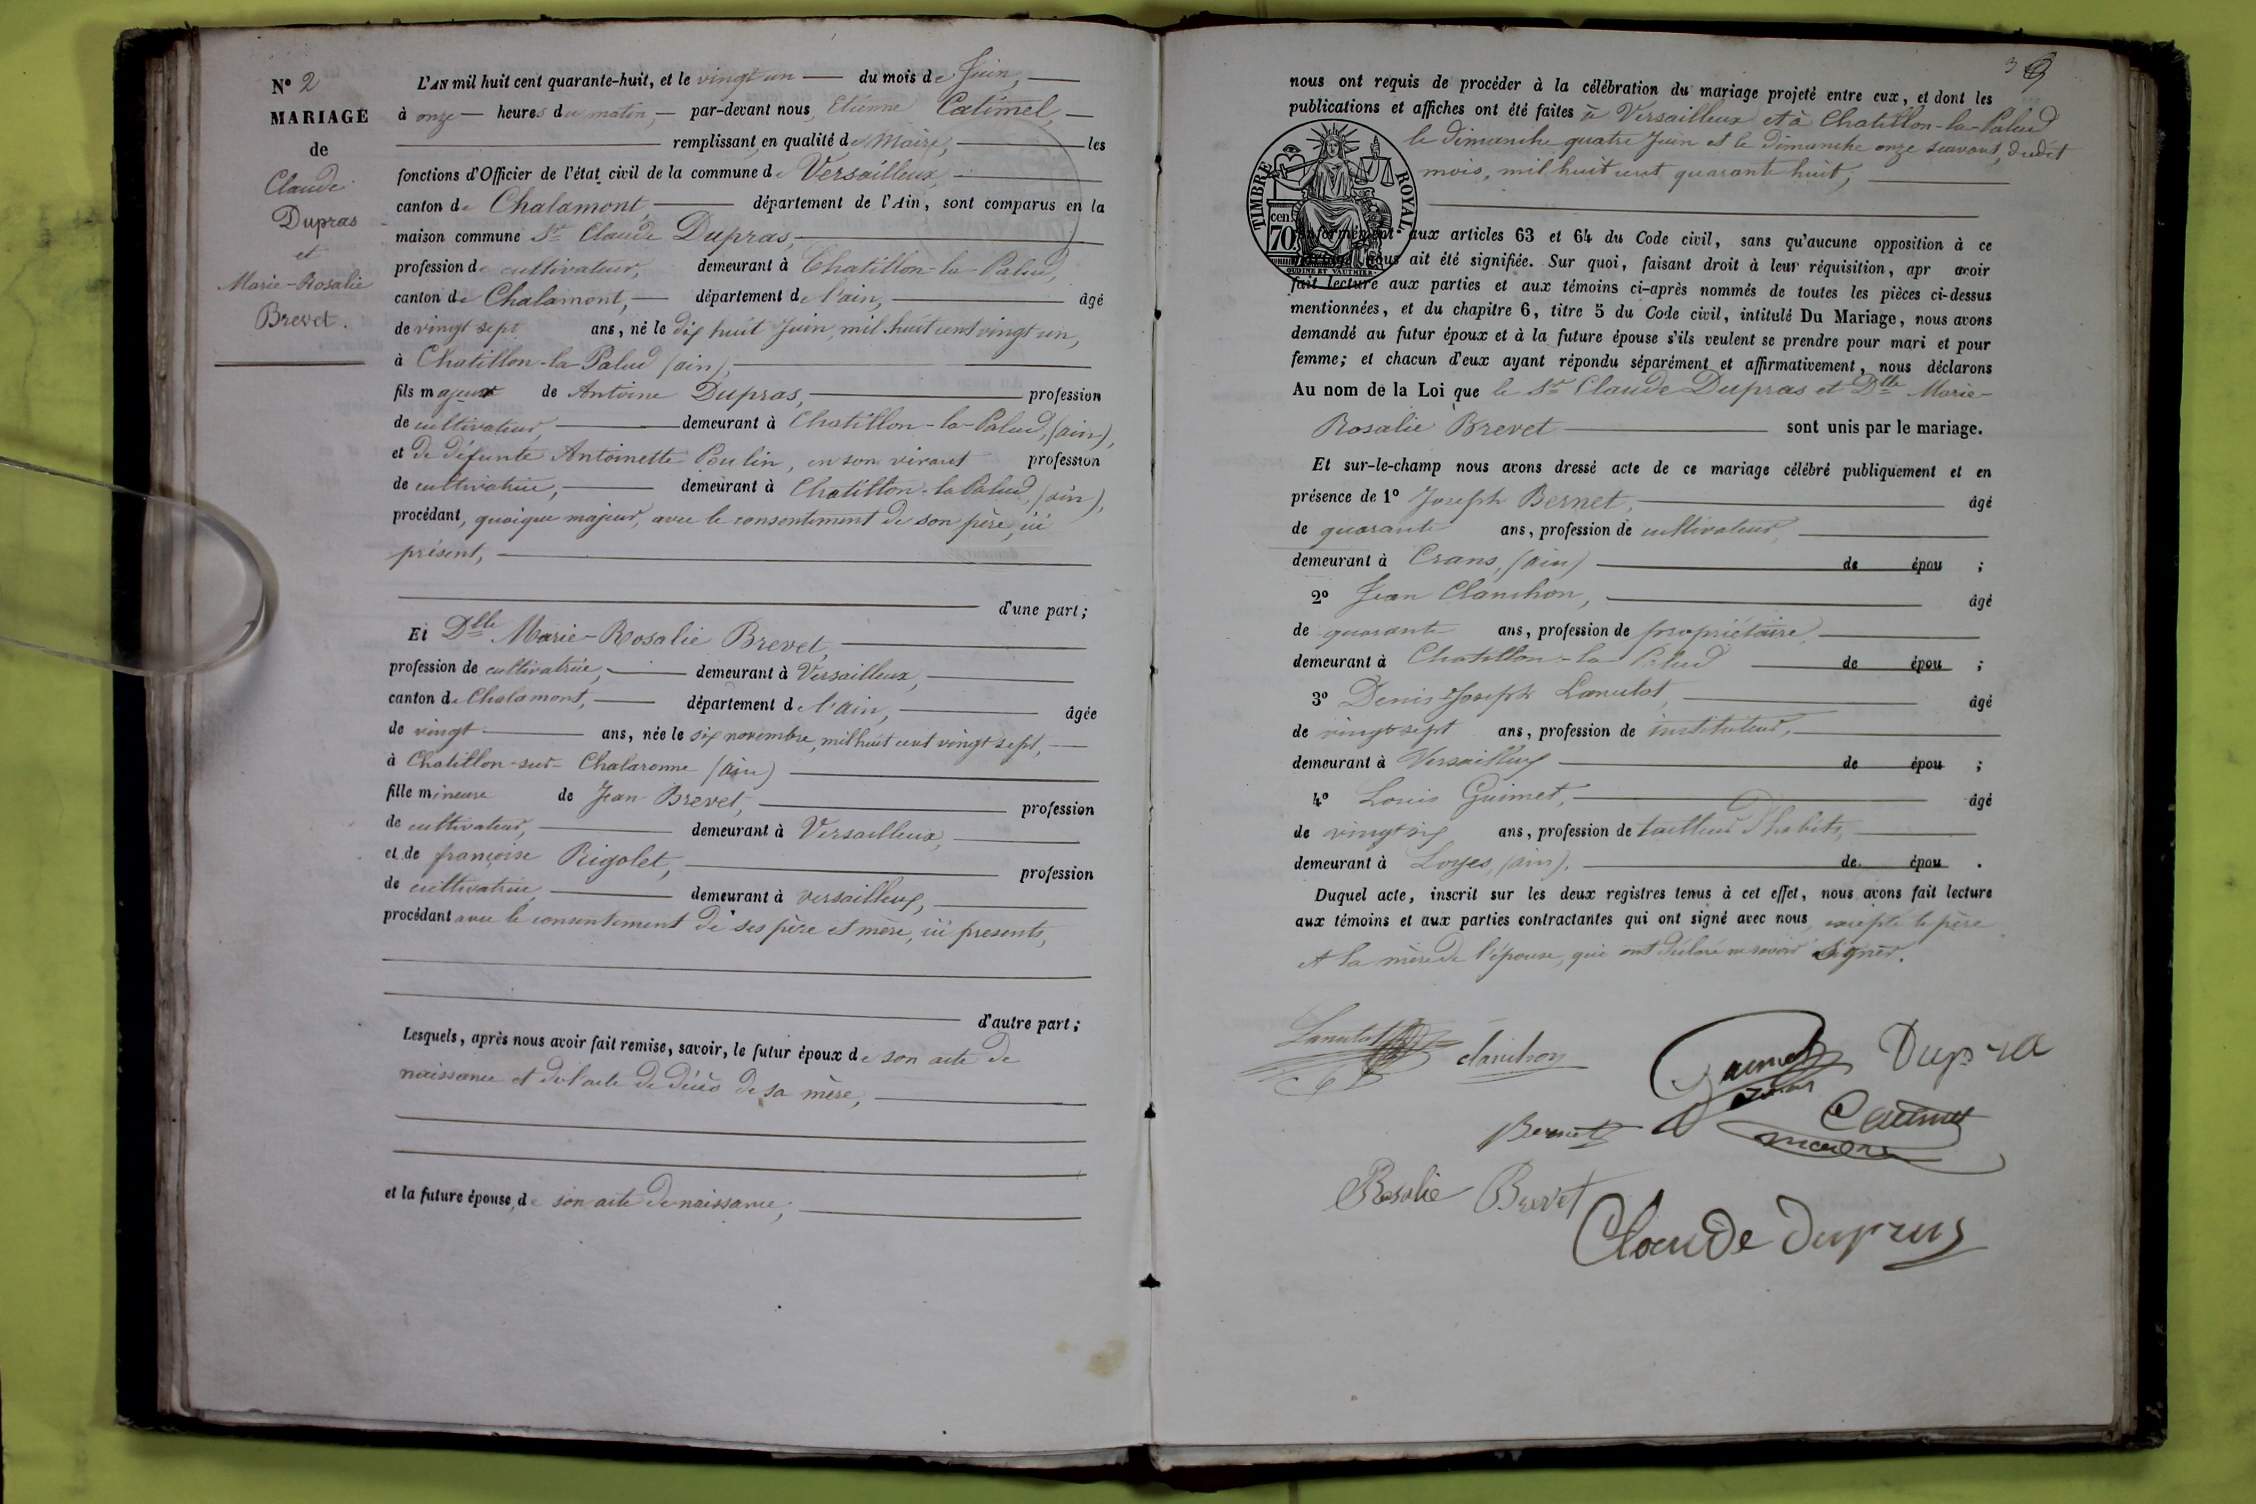 N° 2
MARIAGE
de
Claude
Dupras
et
Marie-Rosalie
Brevet.
L'AN mil huit cent quarante-huit, et le vingt un du mois de Juin,
à onze heures du matin, par-devant nous Etienne Catimel,
remplissant, en qualité de Maire, les
fonctions d'Officier de l'état civil de la commune de Versailleux,
canton de Chalamont, département de l'Ain, sont comparus en la
maison commune Sr Claude Dupras,
profession de cultivateur, demeurant à Chatillon-la-Palud,
canton de Chalamont, département de l'ain, âgé
de vingt sept ans, né le dix huit Juin, mil huit cent vingt un,
à Chatillon-la-Palud (ain),
fils majeur de Antoine Dupras, profession
de cultivateur, demeurant à Chatillon-la-Palud, (ain),
et de défunte Antoinette Poulin, en son vivant profession
de cultivatrice, demeurant à Chatillon-la-Palud, (ain),
procédant, quoique majeur, avec le consentement de son père, ici
présent,
d'une part;
Et Dlle Marie-Rosalie Brevet,
profession de cultivatrice, demeurant à Versailleux,
canton de Chalamont, département de l'ain, âgée
de vingt ans, née le six novembre, mil huit cent vingt sept,
à Chatillon-sur-Chalaronne (ain)
fille mineure de Jean Brevet, profession
de cultivateur, demeurant à Versailleux,
et de françoise Rigolet, profession
de cultivatrice, demeurant à versailleux,
procédant avec le consentement de ses père et mère, ici presents,
d'autre part;
Lesquels, après nous avoir fait remise, savoir, le futur époux de son acte de
naissance et de l'acte de décès de sa mère,
et la future épouse, de son acte de naissance,
3
nous ont requis de procéder à la célébration du mariage projeté entre eux, et dont les
publications et affiches ont été faites à Versailleux et à Chatillon-la-Palud
le dimanche quatre Juin et le Dimanche onze suivant, dudit
mois, mil huit cent quarante huit,
TIMBRE ROYAL
70 cen.
OUDINE ET VAUTHIER
conformément aux articles 63 et 64 du Code civil, sans qu'aucune opposition à ce
mariage nous ait été signifiée. Sur quoi, faisant droit à leur réquisition, apr avoir
fait lecture aux parties et aux témoins ci-après nommés de toutes les pièces ci-dessus
mentionnées, et du chapitre 6, titre 5 du Code civil, intitulé Du Mariage, nous avons
demandé au futur époux et à la future épouse s'ils veulent se prendre pour mari et pour
femme; et chacun d'eux ayant répondu séparément et affirmativement, nous déclarons
Au nom de la Loi que le Sr Claude Dupras et Dlle Marie-
Rosalie Brevet sont unis par le mariage.
Et sur-le-champ nous avons dressé acte de ce mariage célébré publiquement et en
présence de 1° Joseph Bernet, âgé
de quarante ans, profession de cultivateur,
demeurant à Crans, (ain) de épou ;
2° Jean Clanchon, âgé
de quarante ans, profession de propriétaire,
demeurant à Chatillon-la-Palud de épou ;
3° Denis Joseph Lanulot, âgé
de vingt sept ans, profession de instituteur,
demeurant à Versailleux de épou ;
4° Louis Guimet, âgé
de vingt six ans, profession de tailleur d'habits,
demeurant à Loyes, (ain), de épou .
Duquel acte, inscrit sur les deux registres tenus à cet effet, nous avons fait lecture
aux témoins et aux parties contractantes qui ont signé avec nous, excepté le père
et la mère de l'épouse, qui ont déclaré ne savoir signer.
Lanulot clanchon Dupra
Bernet Catimel
maire
Rosalie Brevet
Claude Dupras